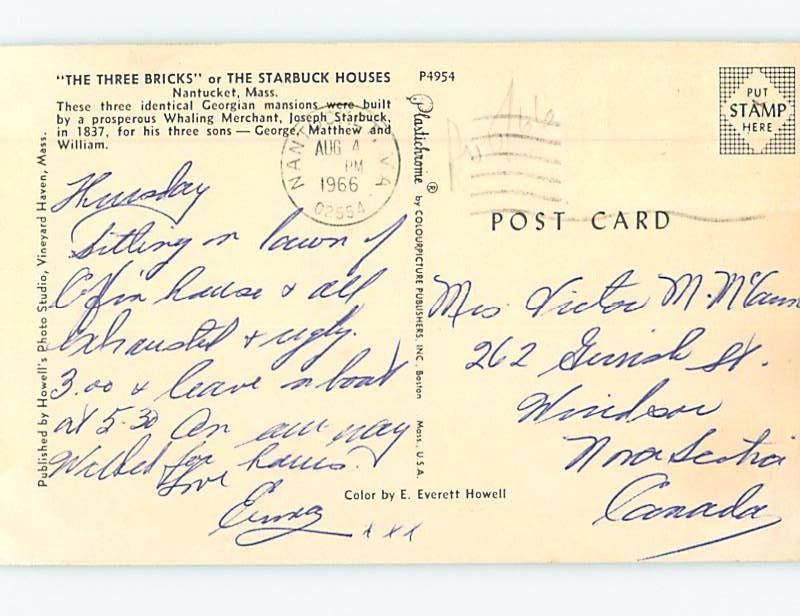 "THE THREE BRICKS" or THE STARBUCK HOUSES
Nantucket, Mass.
These three identical Georgian mansions were built
by a prosperous Whaling Merchant, Joseph Starbuck,
in 1837, for his three sons — George, Matthew and
William.
P4954
Published by Howell's Photo Studio, Vineyard Haven, Mass.
AUG 4
PM
1966
02554
Thursday
Sitting on lawn of
Coffin house & all
exhausted & ugly.
3.00 & leave on boat
at 5.30 On our way
Walked for hours.
Love
xxx
Plastichrome ® by COLOURPICTURE PUBLISHERS, INC. Boston Mass. U.S.A.
Color by E. Everett Howell
PUT
STAMP
HERE
POST CARD
Mrs Victor M. McCann
262 Gerrish St.
Windsor
Nova Scotia
Canada